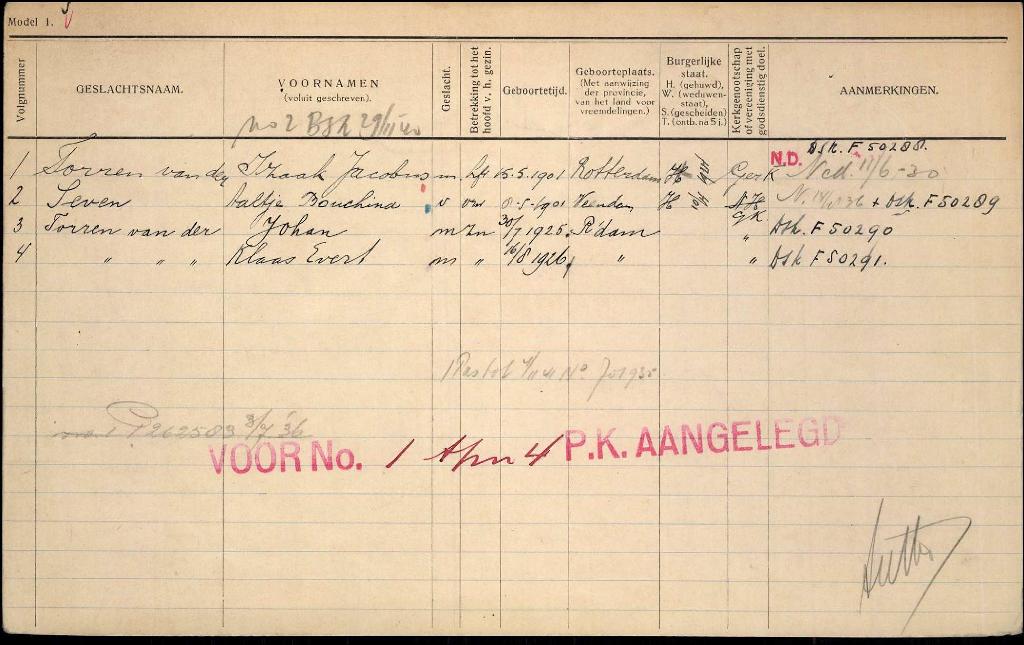 Model 1.
Volgnummer
GESLACHTSNAAM.
VOORNAMEN
(voluit geschreven).
Geslacht.
Betrekking tot het
hoofd v. h. gezin.
Geboortetijd.
Geboorteplaats.
(Met aanwijzing
der provincie,
van het land voor
vreemdelingen.)
Burgerlijke
staat.
H. (gehuwd),
W. (weduwen-
staat),
S. (gescheiden)
T. (ontb. na 5 j.)
Kerkgenootschap
of vereeniging met
godsdienstig doel.
AANMERKINGEN.
no 2 BSK 29/11 40
Dsk. F 50288.
1 Torren van der Izaak Jacobus m. hft 15.5.1901 Rotterdam H Ger K N.D. Ned. 11/6-30
2 Seven Aaltje Bouchina v vrw 8-5-1901 Veendam H N.H. 36 + Dsk. F 50289
GK.
3 Torren van der Johan m Zn 30/7 1925. R'dam " Dsk. F 50290
4 " " " Klaas Evert m " 16/8 1926, " " Dsk F 50291.
P262503 3/7 '36
VOOR No. 1 t/m 4 P.K. AANGELEGD